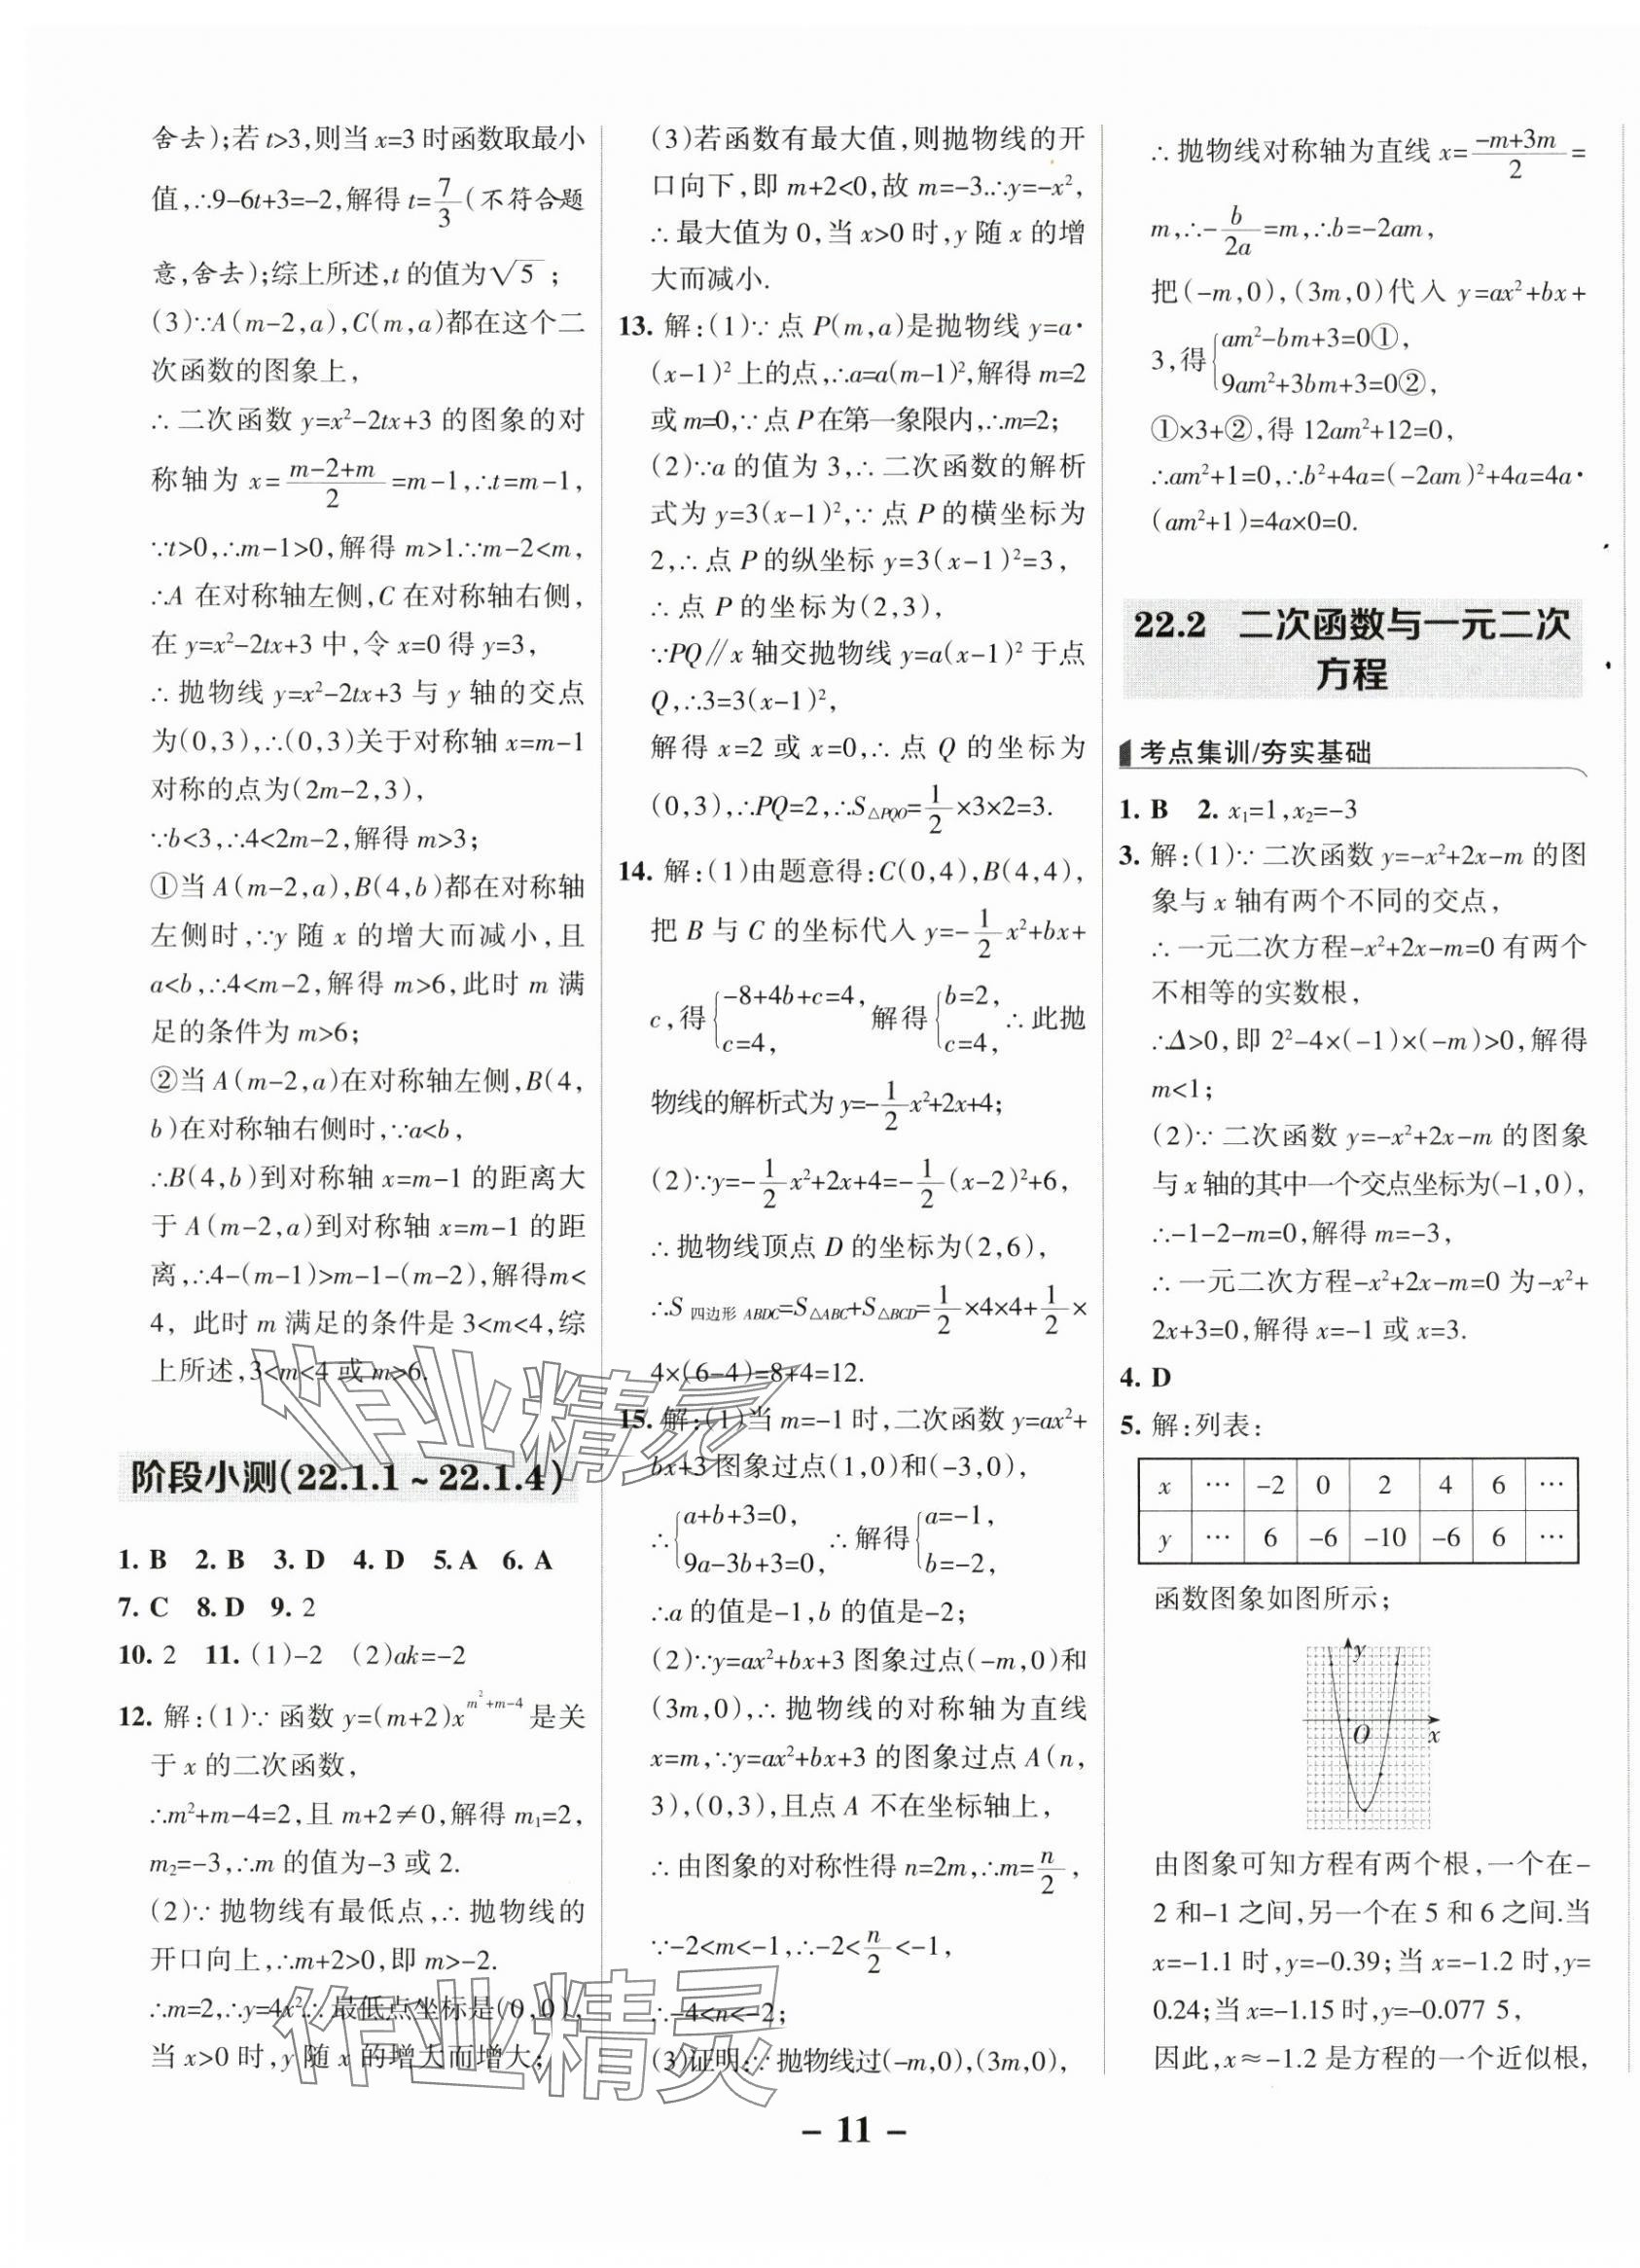 舍去);若 t>3,则当 x=3 时函数取最小
值,∴9-6t+3=-2,解得 t=7/3(不符合题
意,舍去);综上所述,t 的值为√5;
(3)∵A(m-2,a),C(m,a)都在这个二
次函数的图象上,
∴二次函数 y=x²-2tx+3 的图象的对
称轴为 x=(m-2+m)/2=m-1,∴t=m-1,
∵t>0,∴m-1>0,解得 m>1.∵m-2<m,
∴A 在对称轴左侧,C 在对称轴右侧,
在 y=x²-2tx+3 中,令 x=0 得 y=3,
∴抛物线 y=x²-2tx+3 与 y 轴的交点
为(0,3),∴(0,3)关于对称轴 x=m-1
对称的点为(2m-2,3),
∵b<3,∴4<2m-2,解得 m>3;
①当 A(m-2,a),B(4,b)都在对称轴
左侧时,∵y 随 x 的增大而减小,且
a<b,∴4<m-2,解得 m>6,此时 m 满
足的条件为 m>6;
②当 A(m-2,a)在对称轴左侧,B(4,
b)在对称轴右侧时,∵a<b,
∴B(4,b)到对称轴 x=m-1 的距离大
于 A(m-2,a)到对称轴 x=m-1 的距
离,∴4-(m-1)>m-1-(m-2),解得m<
4, 此时 m 满足的条件是 3<m<4,综
上所述,3<m<4 或 m>6.
阶段小测(22.1.1~22.1.4)
1. B 2. B 3. D 4. D 5. A 6. A
7. C 8. D 9. 2
10. 2 11. (1)-2 (2)ak=-2
12. 解:(1)∵函数 y=(m+2)x^(m²+m-4) 是关
于 x 的二次函数,
∴m²+m-4=2,且 m+2≠0,解得 m₁=2,
m₂=-3,∴m 的值为-3 或 2.
(2)∵抛物线有最低点,∴抛物线的
开口向上,∴m+2>0,即 m>-2.
∴m=2,∴y=4x²∴最低点坐标是(0,0),
当 x>0 时,y 随 x 的增大而增大;
(3)若函数有最大值,则抛物线的开
口向下,即 m+2<0,故 m=-3.∴y=-x²,
∴最大值为 0,当 x>0 时,y 随 x 的增
大而减小.
13. 解:(1)∵点 P(m,a)是抛物线 y=a·
(x-1)² 上的点,∴a=a(m-1)²,解得 m=2
或 m=0,∵点 P 在第一象限内,∴m=2;
(2)∵a 的值为 3,∴二次函数的解析
式为 y=3(x-1)²,∵点 P 的横坐标为
2,∴点 P 的纵坐标 y=3(x-1)²=3,
∴点 P 的坐标为(2,3),
∵PQ∥x 轴交抛物线 y=a(x-1)² 于点
Q,∴3=3(x-1)²,
解得 x=2 或 x=0,∴点 Q 的坐标为
(0,3),∴PQ=2,∴S△PQO=1/2×3×2=3.
14. 解:(1)由题意得:C(0,4),B(4,4),
把 B 与 C 的坐标代入 y=-1/2x²+bx+
c,得{-8+4b+c=4, c=4, 解得{b=2, c=4, ∴此抛
物线的解析式为 y=-1/2x²+2x+4;
(2)∵y=-1/2x²+2x+4=-1/2(x-2)²+6,
∴抛物线顶点 D 的坐标为(2,6),
∴S四边形ABDC=S△ABC+S△BCD=1/2×4×4+1/2×
4×(6-4)=8+4=12.
15. 解:(1)当 m=-1 时,二次函数 y=ax²+
bx+3 图象过点(1,0)和(-3,0),
∴{a+b+3=0, 9a-3b+3=0, ∴解得{a=-1, b=-2,
∴a 的值是-1,b 的值是-2;
(2)∵y=ax²+bx+3 图象过点(-m,0)和
(3m,0),∴抛物线的对称轴为直线
x=m,∵y=ax²+bx+3 的图象过点 A(n,
3),(0,3),且点 A 不在坐标轴上,
∴由图象的对称性得 n=2m,∴m=n/2,
∵-2<m<-1,∴-2<n/2<-1,
∴-4<n<-2;
(3)证明:∵抛物线过(-m,0),(3m,0),
∴抛物线对称轴为直线 x=(-m+3m)/2=
m,∴-b/2a=m,∴b=-2am,
把(-m,0),(3m,0)代入 y=ax²+bx+
3,得{am²-bm+3=0①, 9am²+3bm+3=0②,
①×3+②,得 12am²+12=0,
∴am²+1=0,∴b²+4a=(-2am)²+4a=4a·
(am²+1)=4a×0=0.
22.2 二次函数与一元二次
方程
考点集训/夯实基础
1. B 2. x₁=1,x₂=-3
3. 解:(1)∵二次函数 y=-x²+2x-m 的图
象与 x 轴有两个不同的交点,
∴一元二次方程-x²+2x-m=0 有两个
不相等的实数根,
∴Δ>0,即 2²-4×(-1)×(-m)>0,解得
m<1;
(2)∵二次函数 y=-x²+2x-m 的图象
与 x 轴的其中一个交点坐标为(-1,0),
∴-1-2-m=0,解得 m=-3,
∴一元二次方程-x²+2x-m=0 为-x²+
2x+3=0,解得 x=-1 或 x=3.
4. D
5. 解:列表:
x … -2 0 2 4 6 …
y … 6 -6 -10 -6 6 …
函数图象如图所示;
y
O
x
由图象可知方程有两个根,一个在-
2 和-1 之间,另一个在 5 和 6 之间.当
x=-1.1 时,y=-0.39;当 x=-1.2 时,y=
0.24;当 x=-1.15 时,y=-0.077 5,
因此,x≈-1.2 是方程的一个近似根,
- 11 -
作业精灵
作业精灵